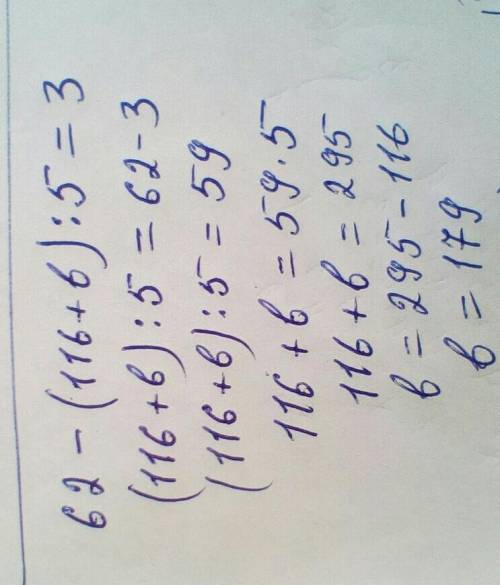 62 - (116 + в) : 5 = 3
(116 + в) : 5 = 62 - 3
(116 + в) : 5 = 59
116 + в = 59 · 5
116 + в = 295
в = 295 - 116
в = 179